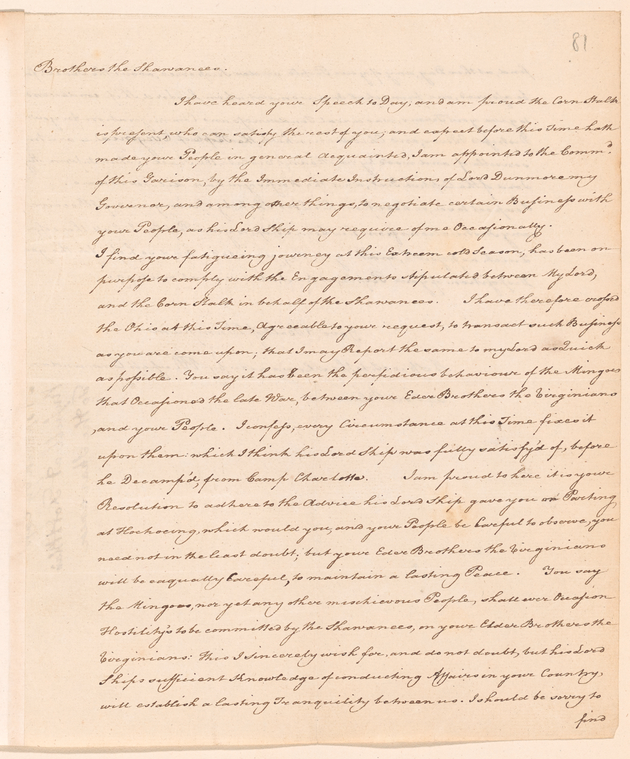 81
Brothers the Shawanees.
I have heard your Speech to Day, and am proud the Corn Stalk
is present, who can satisfy the rest of you; and expect before this Time hath
made your People in general acquainted, I am appointed to the Comm.d
of this Garison, by the Immediate Instructions of Lord Dunmore my
Governor, and among other things, to negotiate certain Business with
your People, as his Lord Ship may require of me Occasionally.
I find your fatigueing journey at this Exteem cold Season, has been on
purpose to comply with the Engagements stipulated between My Lord,
and the Corn Stalk in behalf of the Shawanees. I have therefore crossed
the Ohio at this Time, Agreeable to your request, to transact such Business
as you are come upon; that I may Report the same to my Lord as Quick
as possible. You say it has been the perfidious behaviour of the Mingoes
that Occasioned the late War, between your Eder Brothers the Virginians
, and your People. I confess, every Circumstance at this Time fixes it
upon them which I think his Lord Ship was fully satisfy'd of, before
he Decamp'd, from Camp Charlotte. I am proud to here it is your
Resolution to adhere to the Advice his Lord Ship gave you on Parting,
at Hockocing, which would you, and your People be Careful to observe, you
need not in the least doubt; but your Eder Brothers the Virginians
will be eaqually Careful, to maintain a lasting Peace. You say
the Mingoes, nor yet any other mischievous People, shall ever Ocasion
Hostility's to be committed by the Shawanees, on your Elder Brothers the
Virginians: this I sincerely wish for, and do not doubt, but his Lord
Ships sufficient Knowledge of conducting Affairs in your Country,
will establish a lasting Tranquility between us. I should be sorry to
find